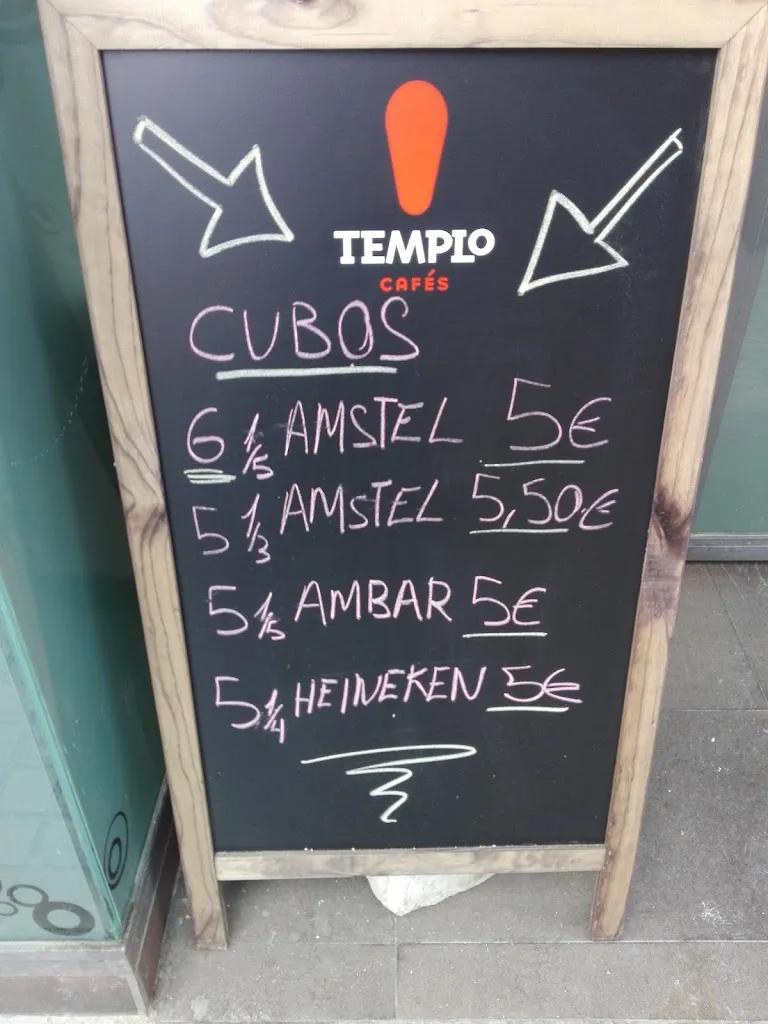 TEMPLO
CAFÉS
CUBOS
6 1/5 AMSTEL 5€
5 1/3 AMSTEL 5,50€
5 1/5 AMBAR 5€
5 1/4 HEINEKEN 5€